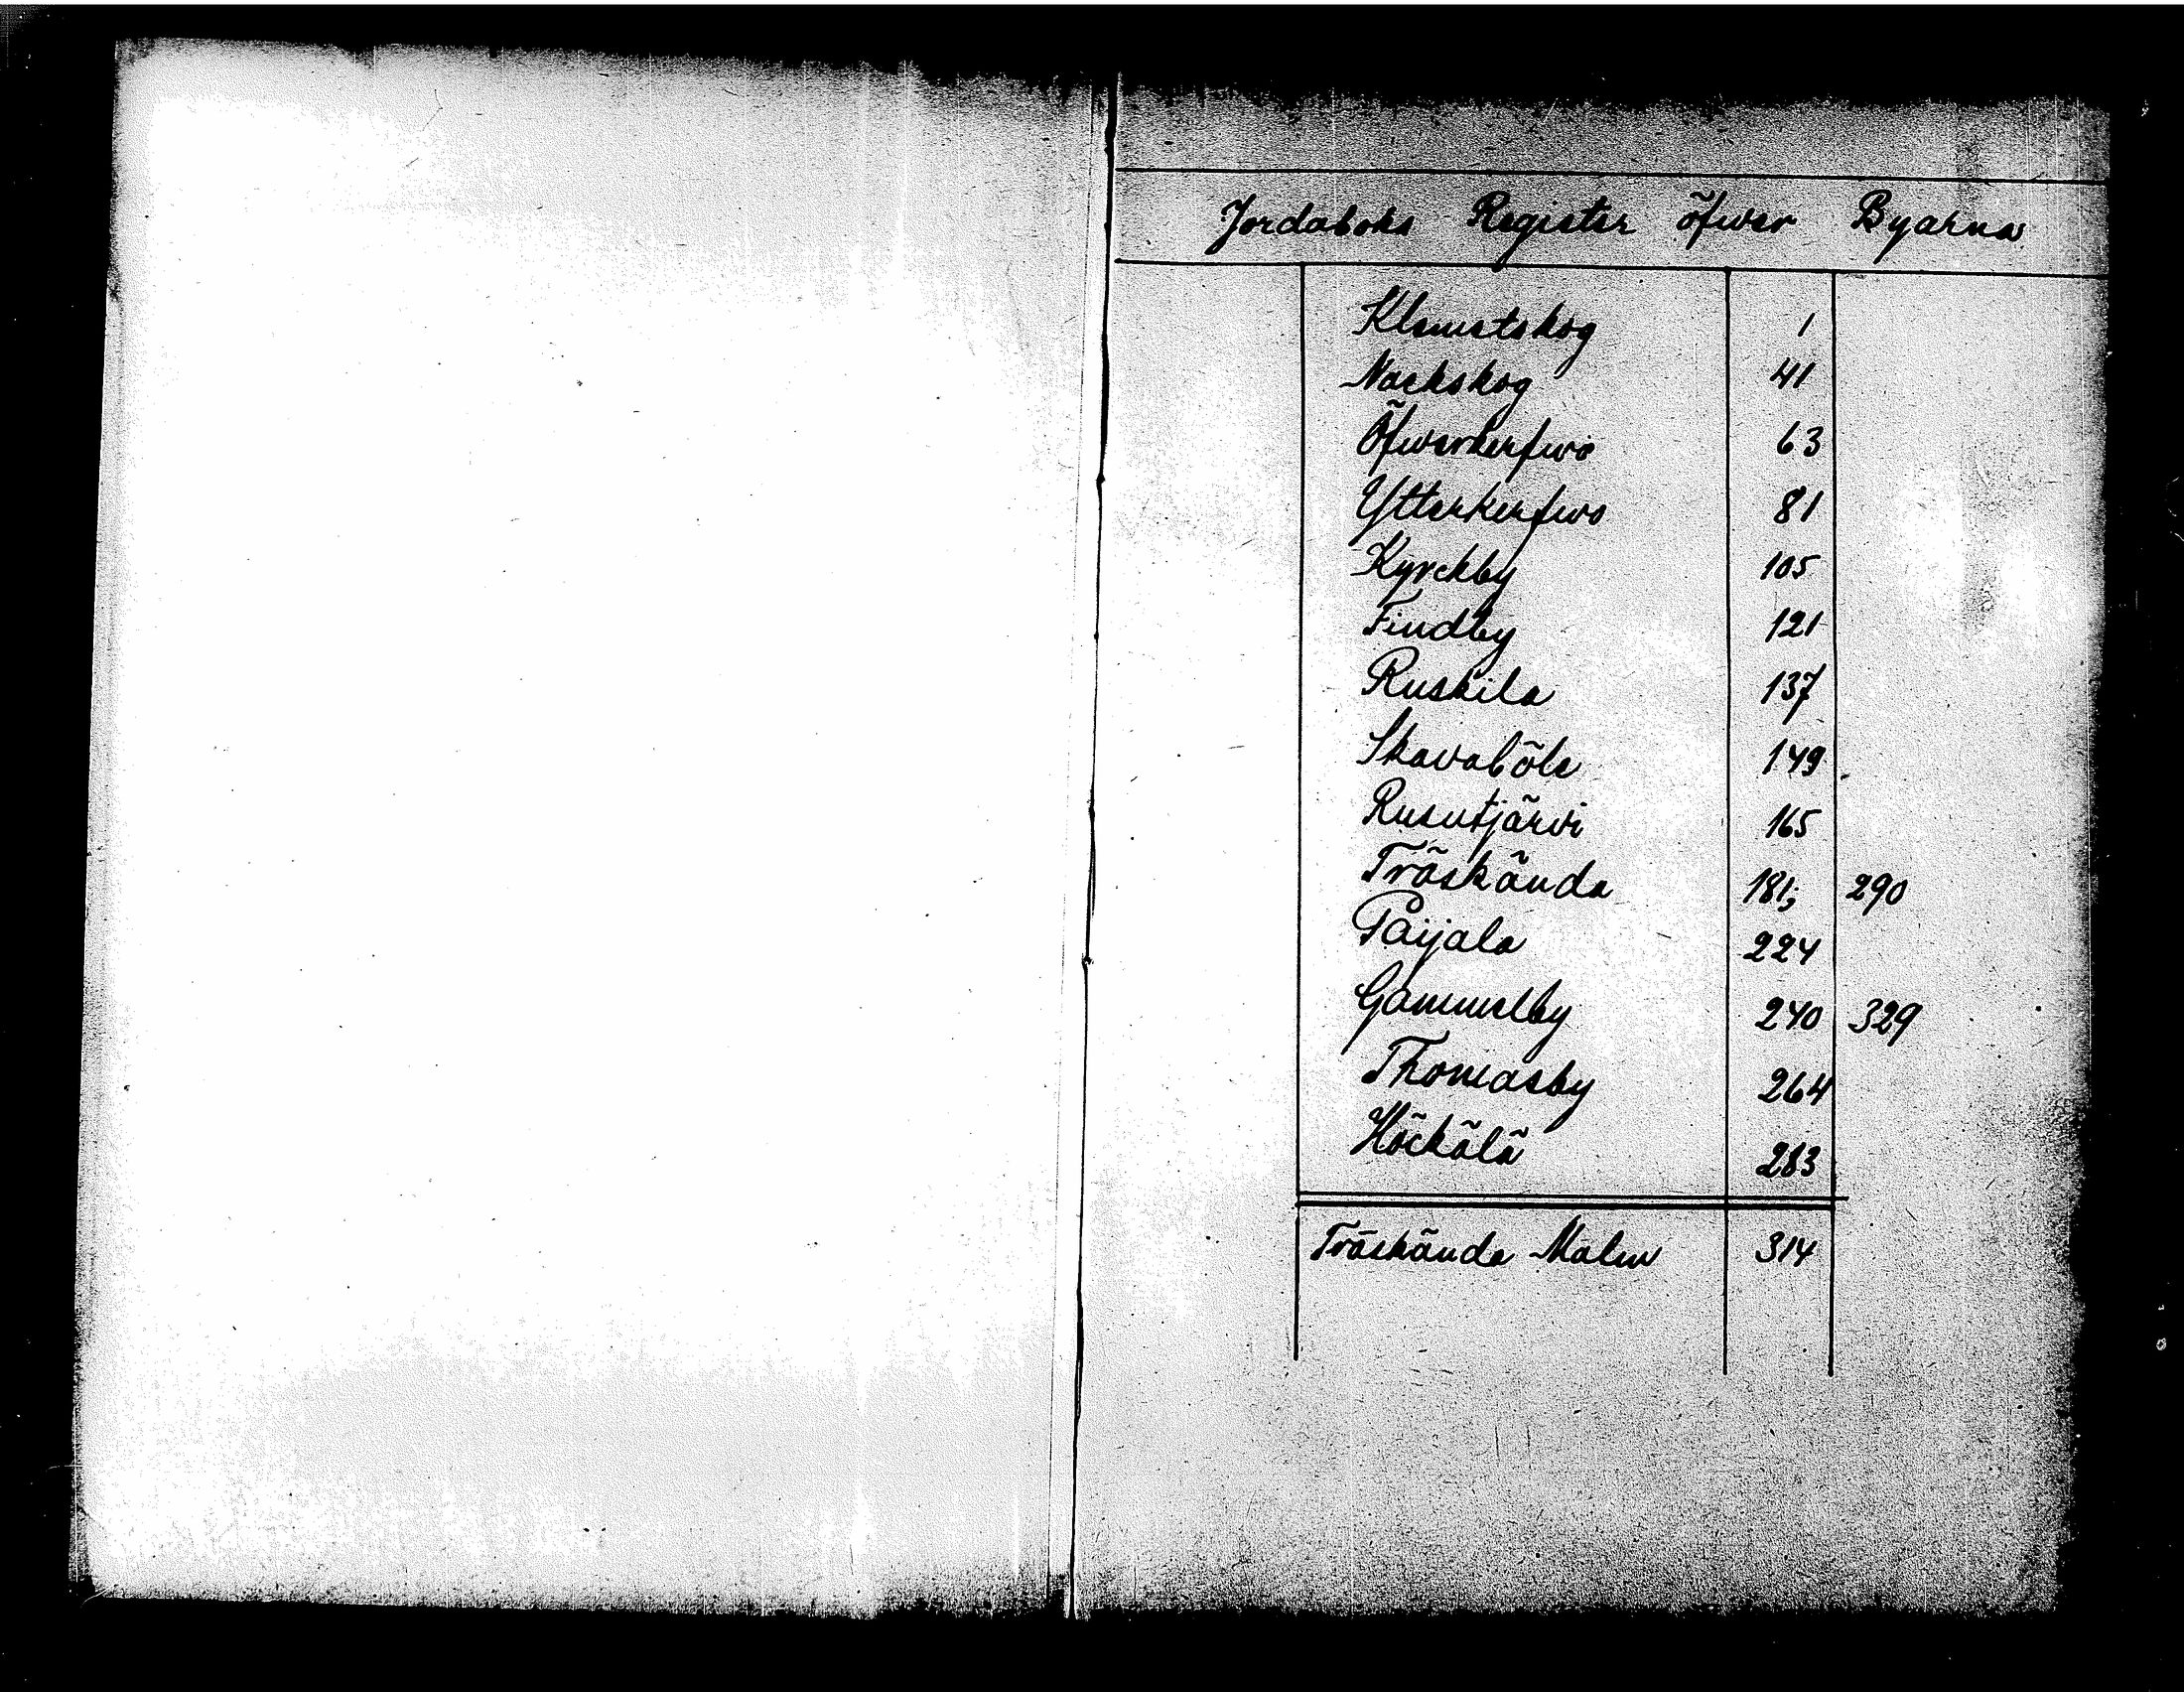 Jordaboks Register öfwer Byarna
Klemetskog 1
Nackskog 41
Öfwerkerfwo 63
Ytterkerfwo 81
Kyrckby 105
Findby 121
Ruskila 137
Skavaböle 149
Rusutjärvi 165
Träskända 181; 290
Paijala 224
Gammelby 240 329
Thomasby 264
Höckälä 283
Träskända Malm 314